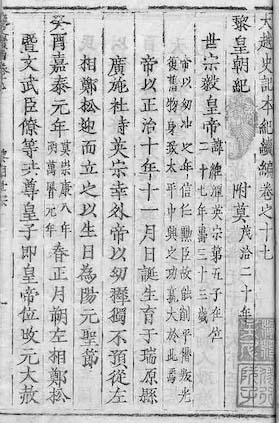 大越史記本紀續編卷之十七
黎皇朝紀 附莫茂洽二十年
世宗毅皇帝 諱維潭英宗第五子在位
二十七年壽三十三歲
帝以幼沖之年信任勳臣故能削平僭叛光
復舊物身致太平中興之功莫大於此焉
帝以正治十年十一月日誕生育于瑞原縣
廣施社時英宗幸外帝以幼穉獨不預從左
相鄭松迎而立之以生日為陽元聖節
癸酉嘉泰元年 莫崇康八年
明萬曆元年 春正月朔左相鄭松
暨文武臣僚等共尊皇子即皇帝位改元大赦